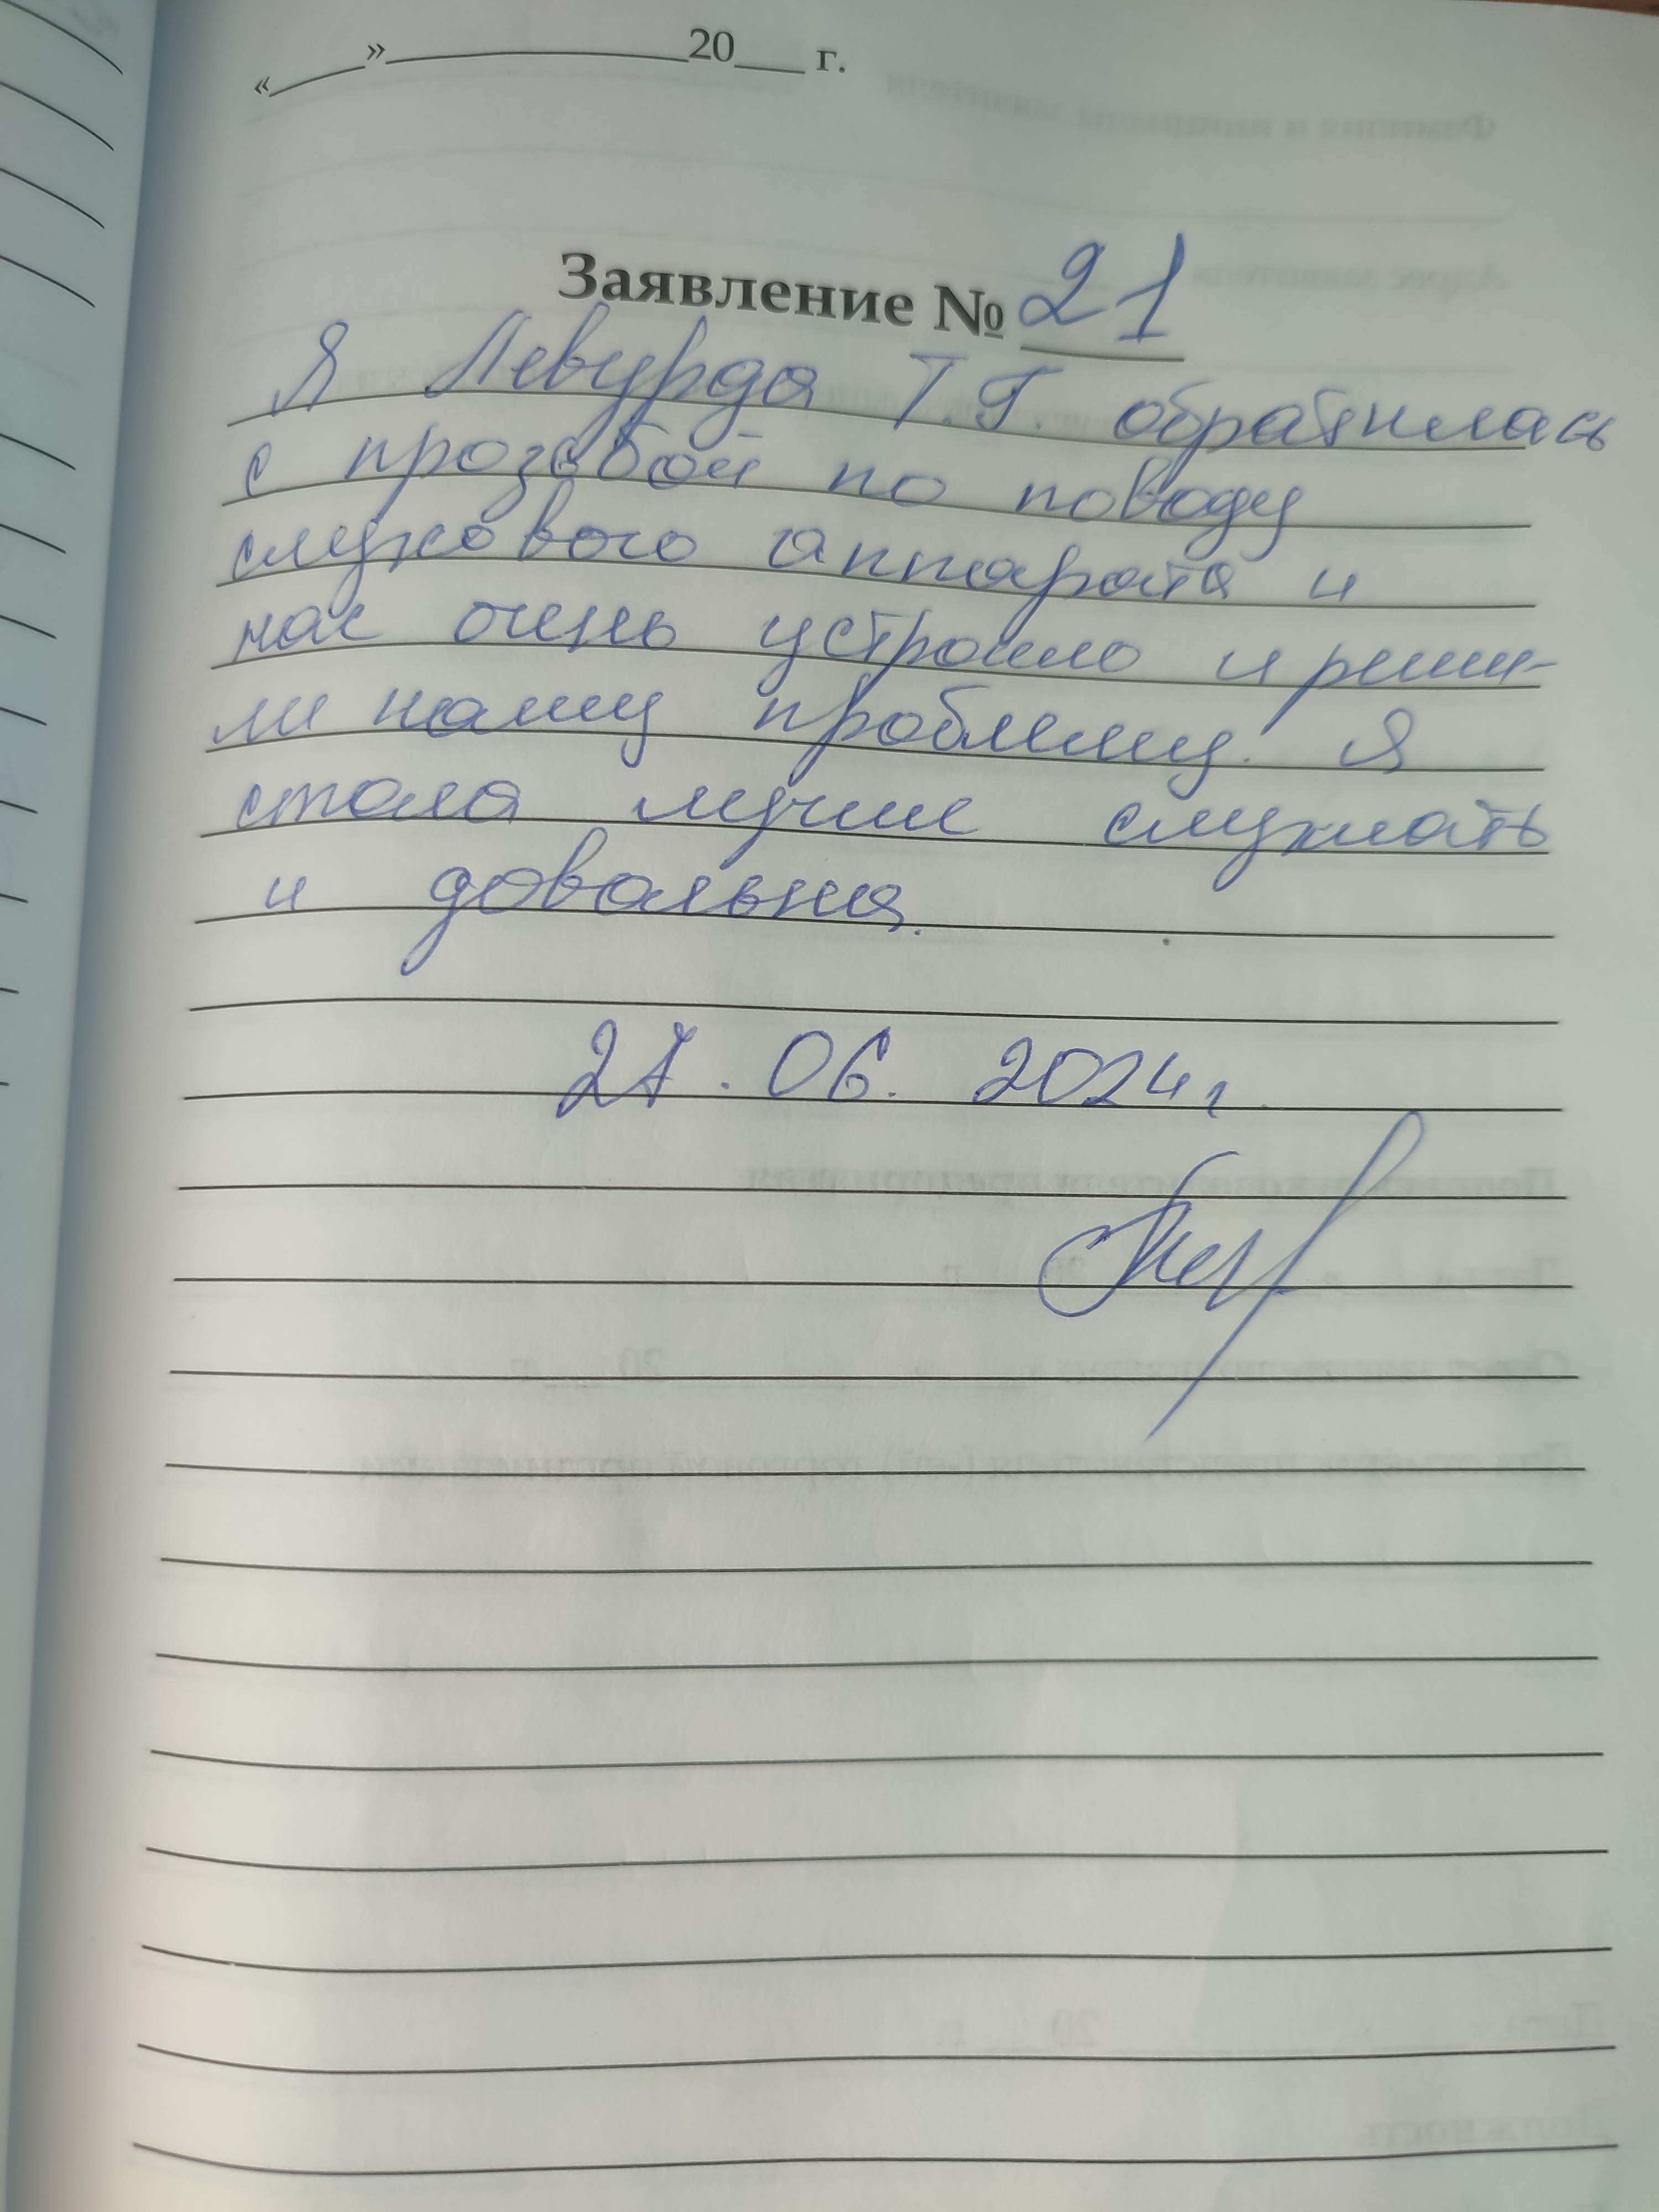 «____»______________20___ г.
Заявление № 21
Я Левурда Т.Г. обратилась
с прозьбой по поводу
слухового аппарата и
нас очень устроило и реши-
ли нашу проблему. Я
стала лучше слушать
и довольна.
27. 06. 2024 г.